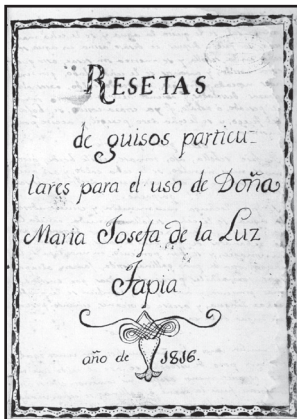 RESETAS
de guisos particu-
lares para el uso de Doña
Maria Josefa de la Luz
Tapia
año de 1816.